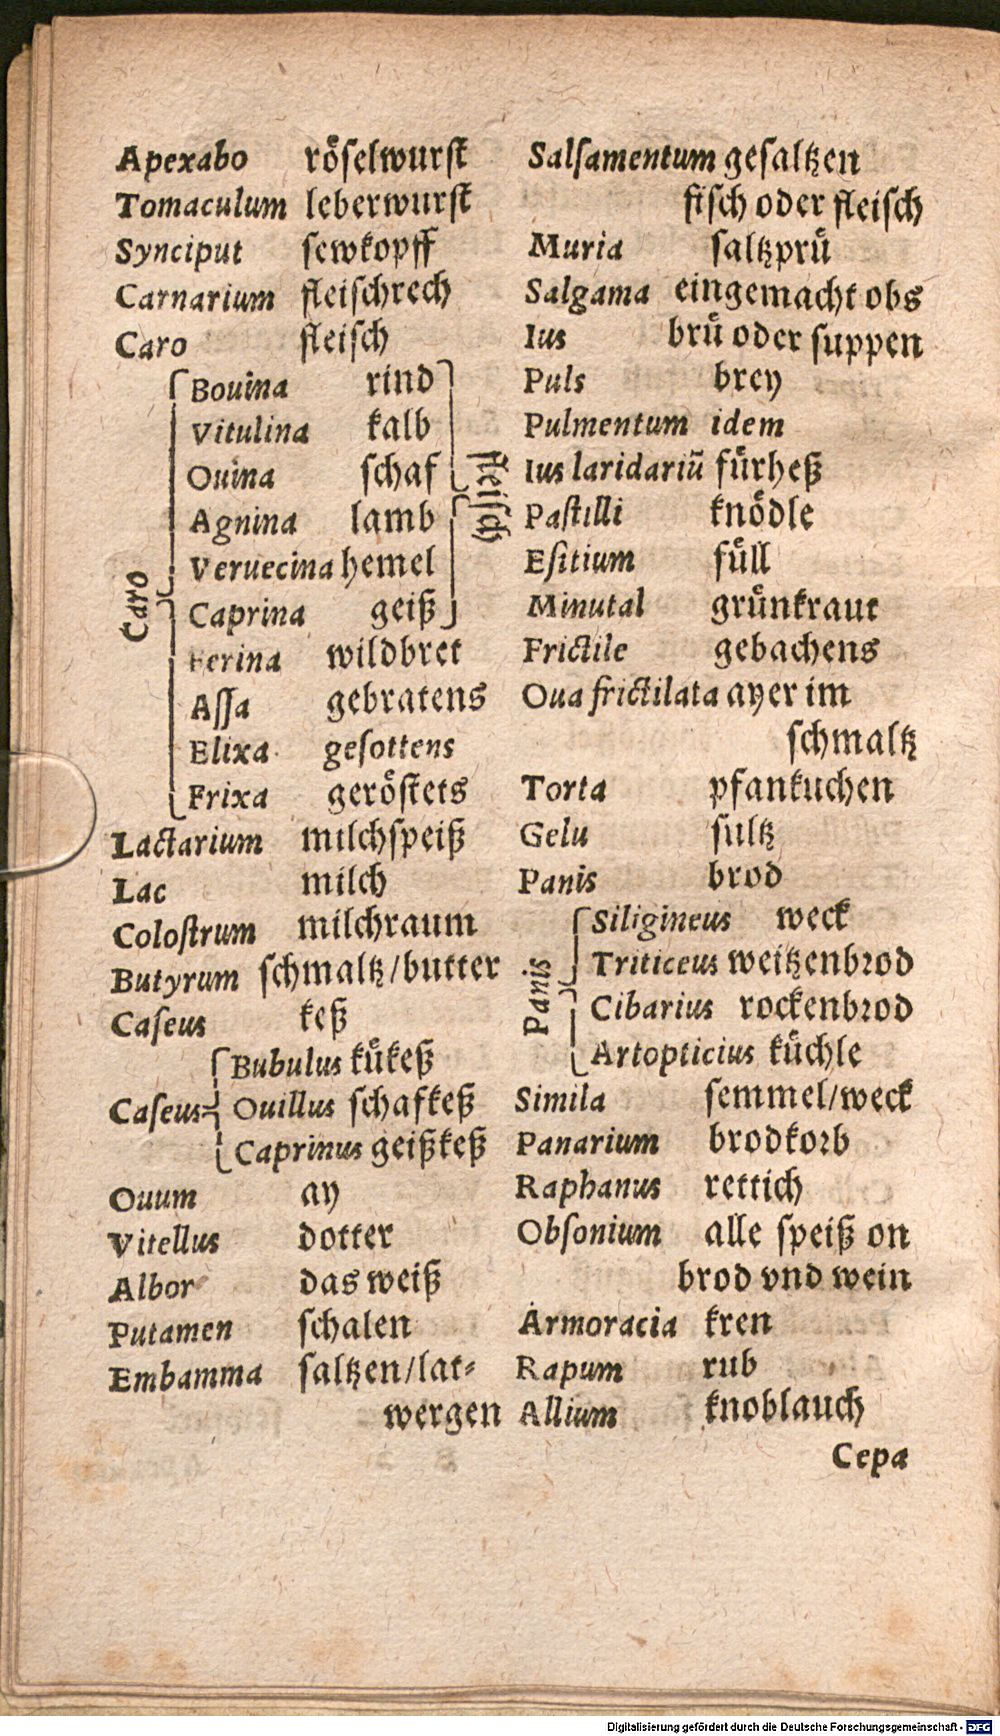 Apexabo röselwurst
Tomaculum leberwurst
Synciput sewkopff
Carnarium fleischrech
Caro fleisch
Caro
Bouina rind
Vitulina kalb
Ouina schaf
Agnina lamb
Veruecina hemel
Caprina geiß
fleisch
Ferina wildbret
Aſſa gebratens
Elixa gesottens
Frixa geröstets
Lactarium milchspeiß
Lac milch
Coloſtrum milchraum
Butyrum schmaltz/butter
Caſeus keß
Caſeus
Bubulus kükeß
Ouillus schafkeß
Caprinus geißkeß
Ouum ay
Vitellus dotter
Albor das weiß
Putamen schalen
Embamma saltzen/lat-
wergen
Salſamentum gesaltzen
fisch oder fleisch
Muria saltzprü
Salgama eingemacht obs
Ius brü oder suppen
Puls brey
Pulmentum idem
Ius laridariū fürheß
Paſtilli knödle
Eſitium füll
Minutal grünkraut
Frictile gebachens
Oua frictilata ayer im
schmaltz
Torta pfankuchen
Gelu sultz
Panis brod
Panis
Siligineus weck
Triticeus weitzenbrod
Cibarius rockenbrod
Artopticius küchle
Simila semmel/weck
Panarium brodkorb
Raphanus rettich
Obſonium alle speiß on
brod vnd wein
Armoracia kren
Rapum rub
Allium knoblauch
Cepa
Digitalisierung gefördert durch die Deutsche Forschungsgemeinschaft - DFG